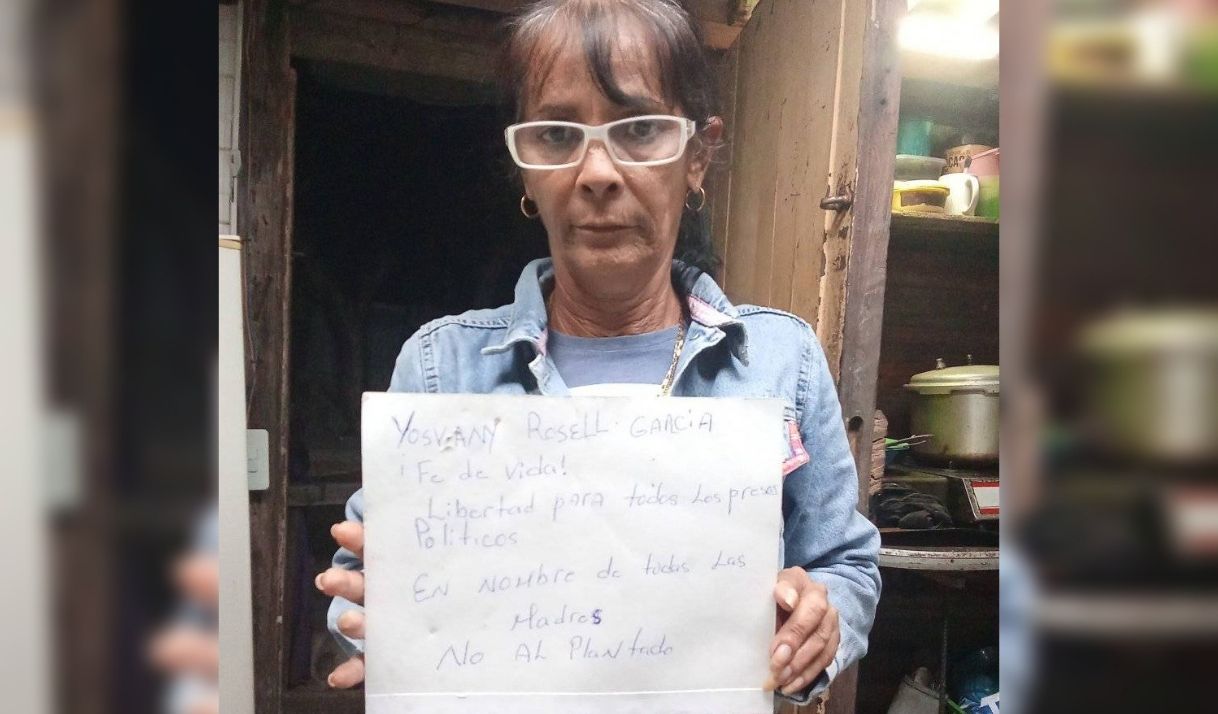 YOSVANY ROSELL GARCIA
¡Fe de vida!
Libertad para todos los presos
Políticos
EN NOMBRE de todas las
Madres
No AL Plantado